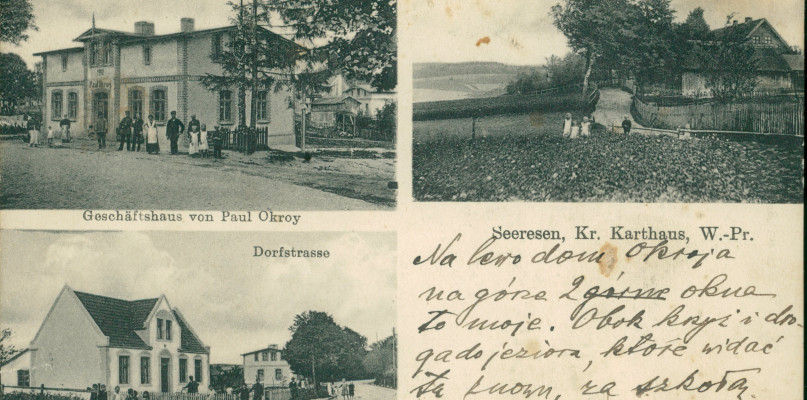 Paul Okroy
Geschäftshaus von Paul Okroy
Seeresen, Kr. Karthaus, W.-Pr.
Dorfstrasse
Na lewo dom Okroja
na górze 2 górne okna
to moje. Obok krzyż i dro-
ga do jeziora, które widać
za szkołą.